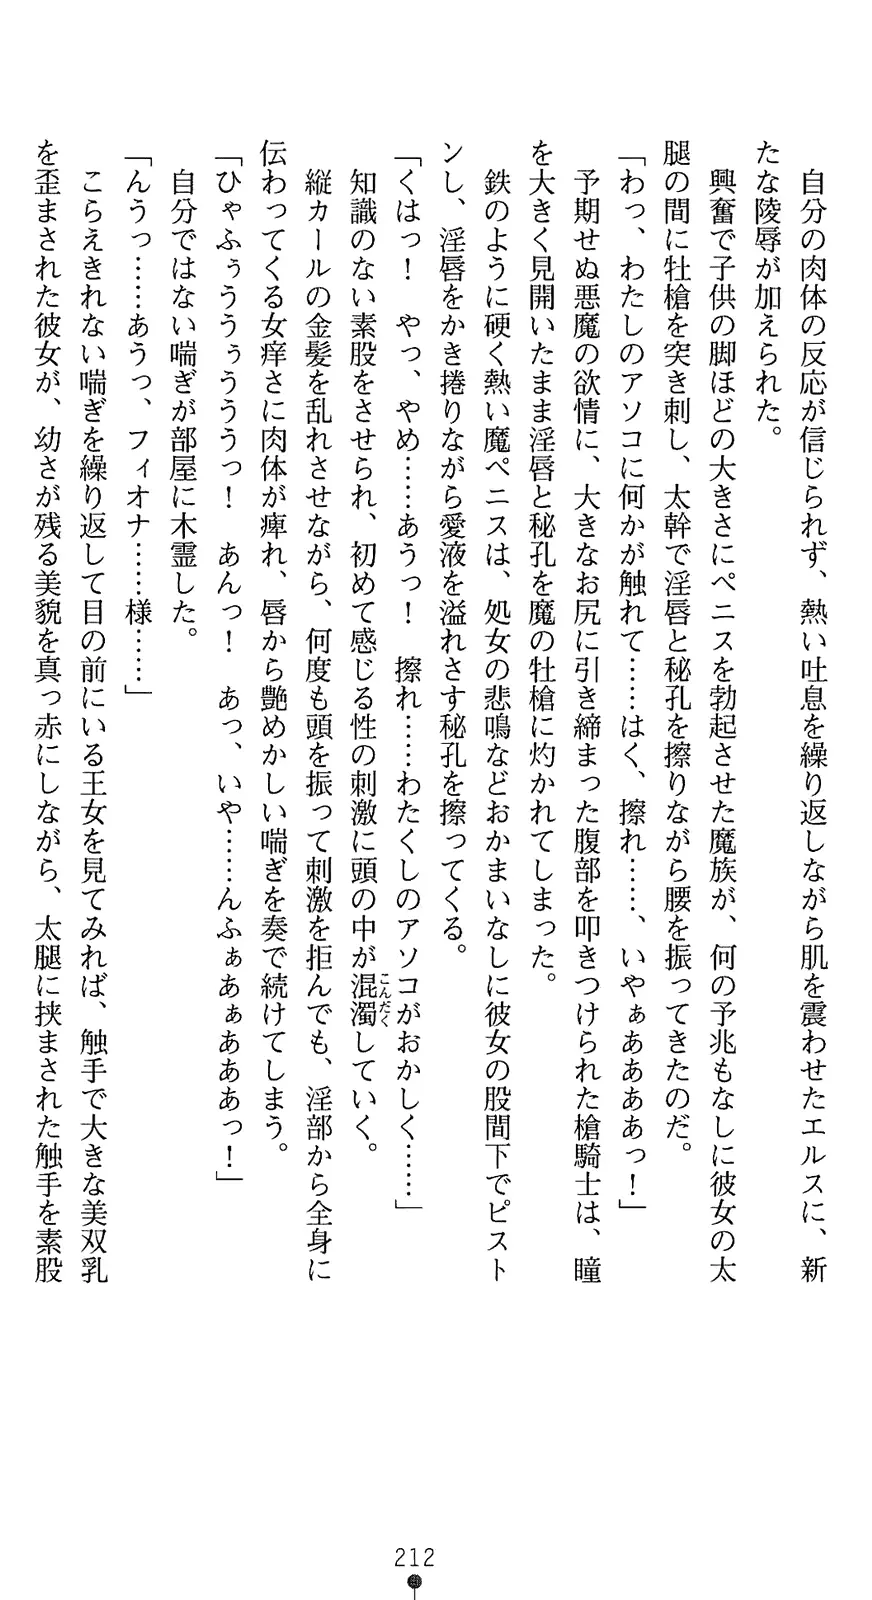 自分の肉体の反応が信じられず、熱い吐息を繰り返しながら肌を震わせたエルスに、新
たな陵辱が加えられた。
興奮で子供の脚ほどの大きさにペニスを勃起させた魔族が、何の予兆もなしに彼女の太
腿の間に牡槍を突き刺し、太幹で淫唇と秘孔を擦りながら腰を振ってきたのだ。
「わっ、わたしのアソコに何かが触れて……はく、擦れ……、いやぁああああっ！」
予期せぬ悪魔の欲情に、大きなお尻に引き締まった腹部を叩きつけられた槍騎士は、瞳
を大きく見開いたまま淫唇と秘孔を魔の牡槍に灼かれてしまった。
鉄のように硬く熱い魔ペニスは、処女の悲鳴などおかまいなしに彼女の股間下でピスト
ンし、淫唇をかき捲りながら愛液を溢れさす秘孔を擦ってくる。
「くはっ！　やっ、やめ……あうっ！　擦れ……わたくしのアソコがおかしく……」
知識のない素股をさせられ、初めて感じる性の刺激に頭の中が混濁こんだくしていく。
縦カールの金髪を乱れさせながら、何度も頭を振って刺激を拒んでも、淫部から全身に
伝わってくる女痒さに肉体が痺れ、唇から艶めかしい喘ぎを奏で続けてしまう。
「ひゃふぅううぅうううっ！　あんっ！　あっ、いや……んふぁあぁあああっ！」
自分ではない喘ぎが部屋に木霊した。
「んうっ……あうっ、フィオナ……様……」
こらえきれない喘ぎを繰り返して目の前にいる王女を見てみれば、触手で大きな美双乳
を歪まされた彼女が、幼さが残る美貌を真っ赤にしながら、太腿に挟まされた触手を素股
212